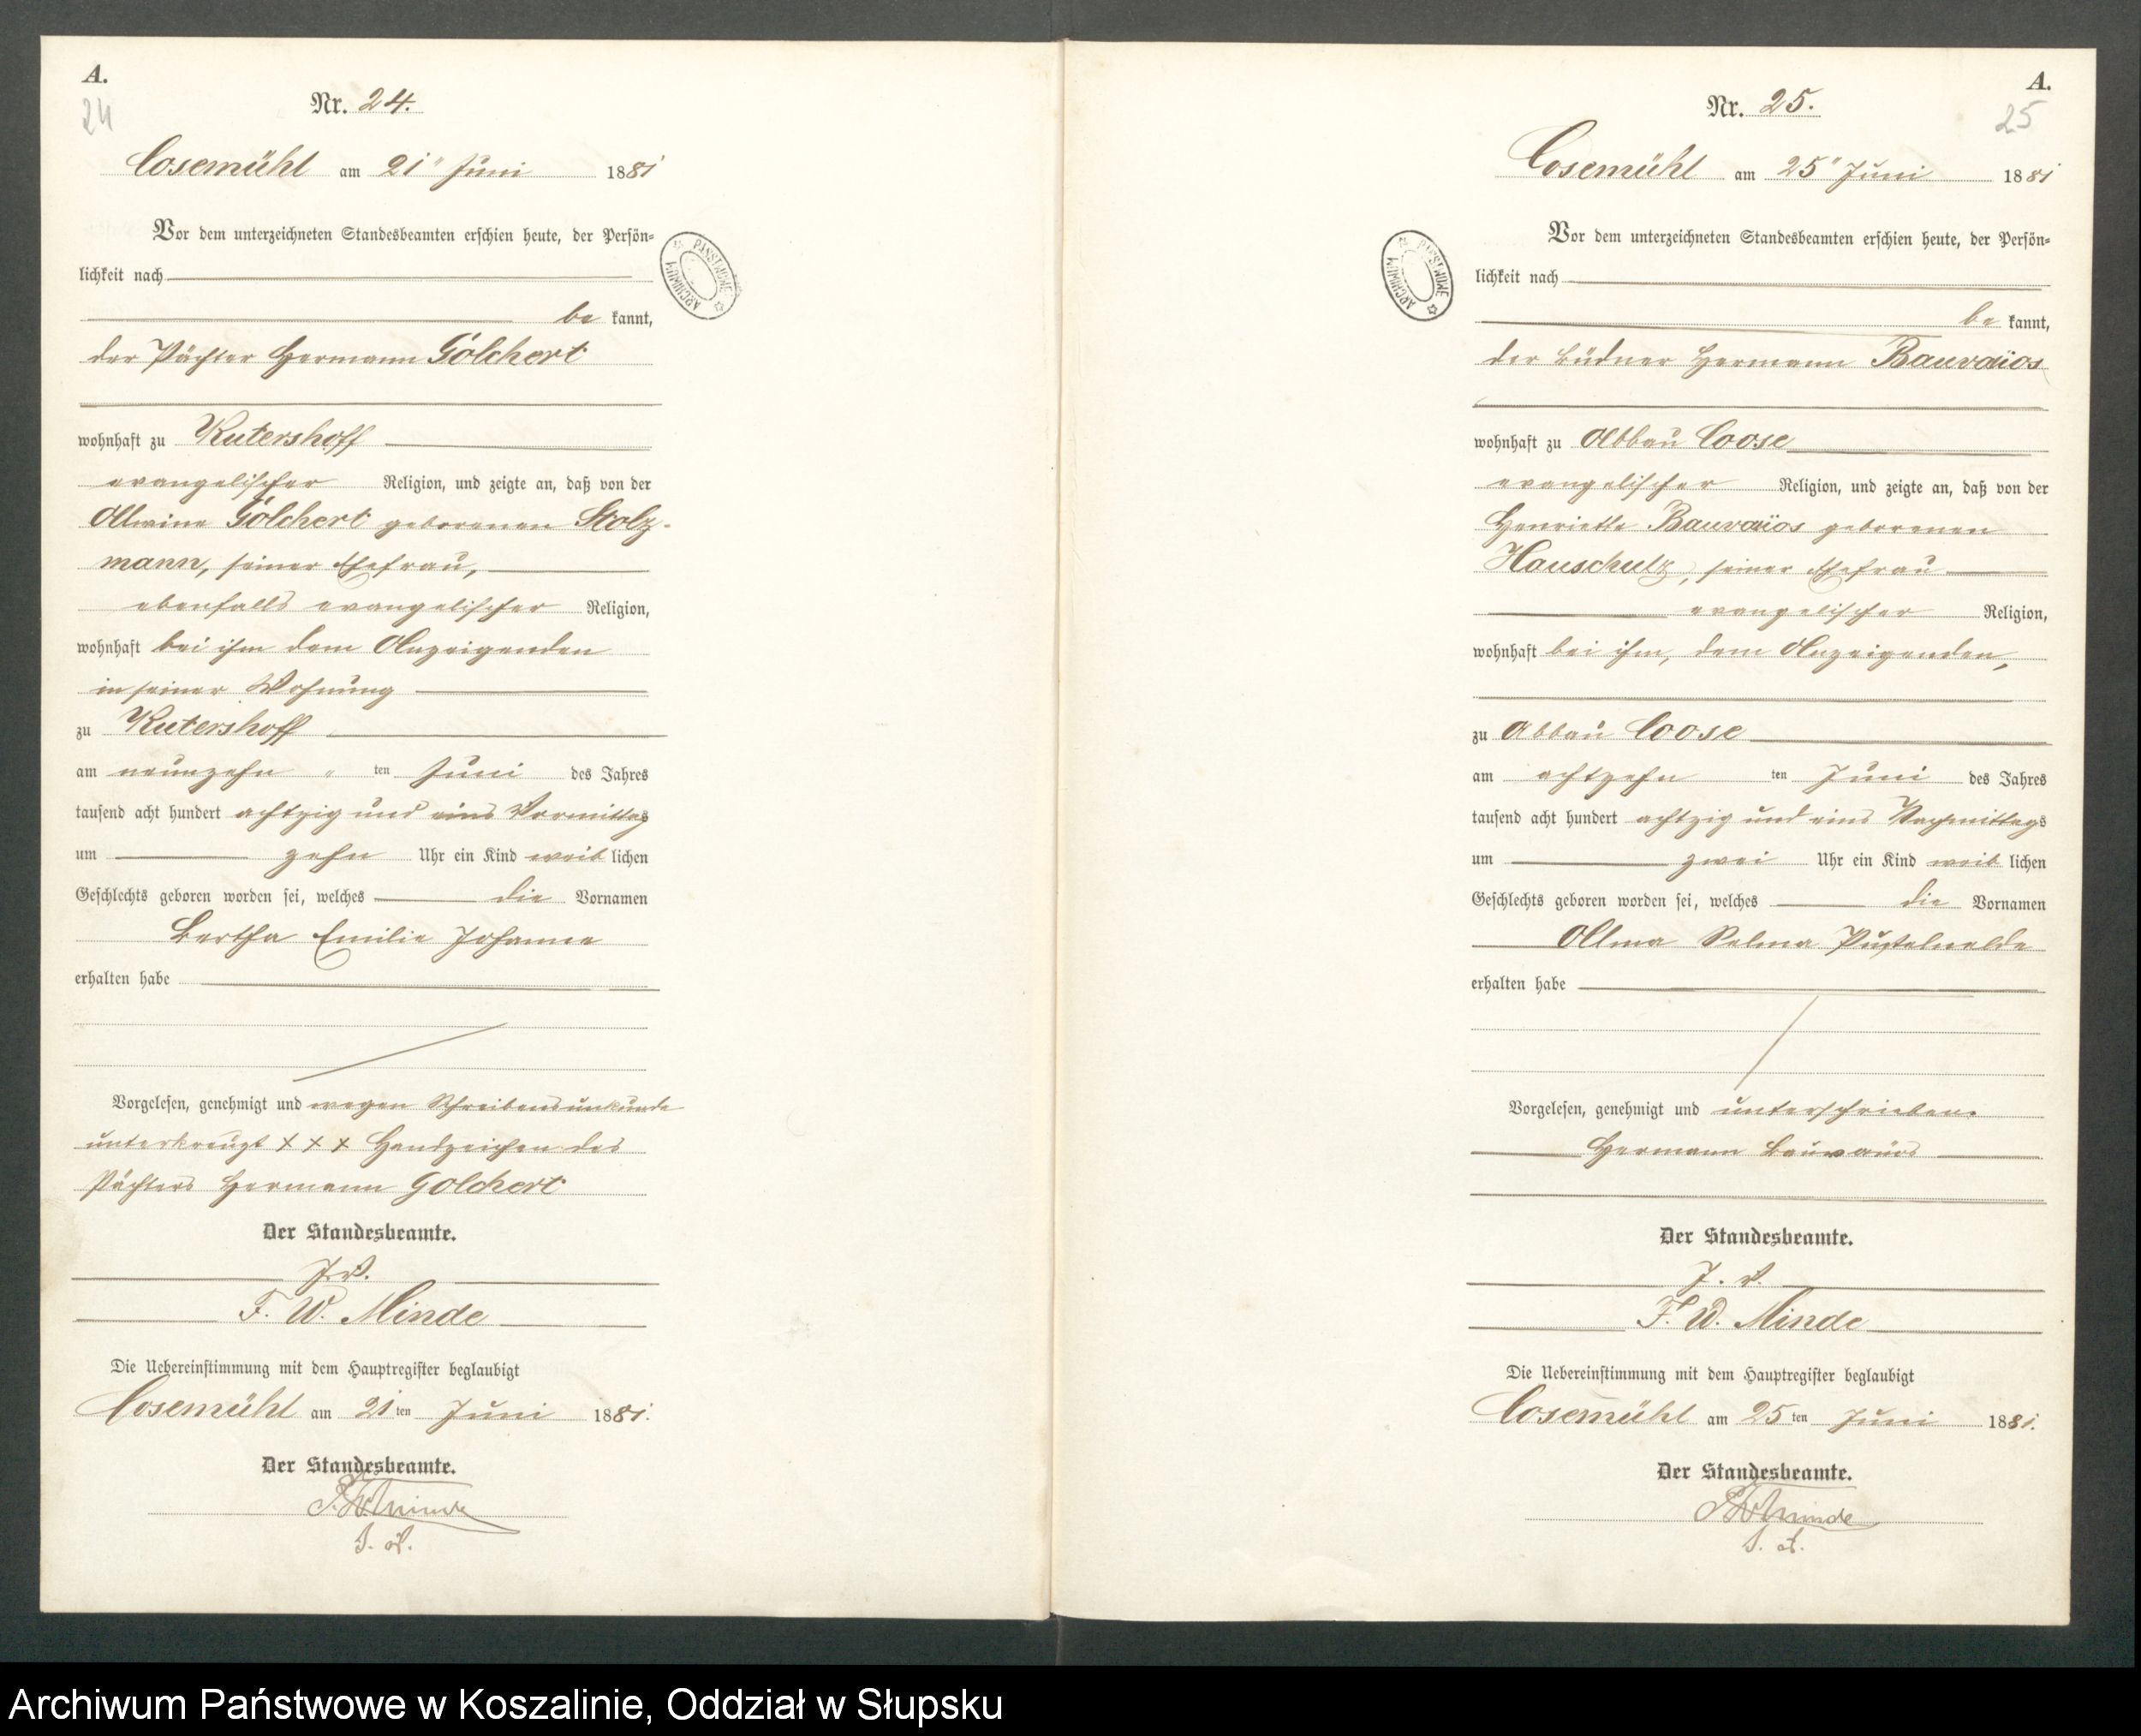 A.
24
Nr. 24.
Cosemühl am 21" Juni 1881
Vor dem unterzeichneten Standesbeamten erschien heute, der Persön=
lichkeit nach
be kannt,
der Pächter Hermann Golchert
wohnhaft zu Rutershoff
evangelischer Religion, und zeigte an, daß von der
Alwine Golchert geborenen Stolz-
mann, seiner Ehefrau,
ebenfalls evangelischer Religion,
wohnhaft bei ihm dem Anzeigenden
in seiner Wohnung
zu Rutershoff
am neunzehn " ten Juni des Jahres
tausend acht hundert achtzig und eins Vormittag
um zehn Uhr ein Kind weib lichen
Geschlechts geboren worden sei, welches die Vornamen
Bertha Emilie Johanne
erhalten habe
Vorgelesen, genehmigt und wegen Schreibensunkunde
unterkreuzt x x x Handzeichen des
Pächters Hermann Golchert
Der Standesbeamte.
J. V.
F. W. Minde
Die Uebereinstimmung mit dem Hauptregister beglaubigt
Cosemühl am 21 ten Juni 1881.
Der Standesbeamte.
F. W. Minde
J. V.
ARCHIWUM PAŃSTWOWE
A.
25
Nr. 25.
Cosemühl am 25" Juni 1881
Vor dem unterzeichneten Standesbeamten erschien heute, der Persön=
lichkeit nach
be kannt,
der Büdner Hermann Bauvaios
wohnhaft zu Abbau Coose
evangelischer Religion, und zeigte an, daß von der
Henriette Bauvaios geborenen
Hauschulz, seiner Ehefrau
evangelischer Religion,
wohnhaft bei ihm, dem Anzeigenden,
zu Abbau Coose
am achtzehn ten Juni des Jahres
tausend acht hundert achtzig und eins Nachmittags
um zwei Uhr ein Kind weib lichen
Geschlechts geboren worden sei, welches die Vornamen
Alma Selma
erhalten habe
Vorgelesen, genehmigt und unterschrieben.
Hermann
Der Standesbeamte.
J. V.
F. W. Minde
Die Uebereinstimmung mit dem Hauptregister beglaubigt
Cosemühl am 25 ten Juni 1881.
Der Standesbeamte.
F. W. Minde
J. V.
ARCHIWUM PAŃSTWOWE
Archiwum Państwowe w Koszalinie, Oddział w Słupsku